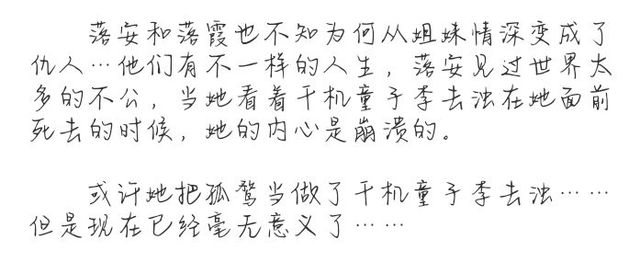 落安和落霞也不知为何从姐妹情深变成了
仇人…他们有不一样的人生，落安见过世界太
多的不公，当她看着千机童子李去浊在她面前
死去的时候，她的内心是崩溃的。
或许她把孤鹜当做了千机童子李去浊……
但是现在已经毫无意义了……